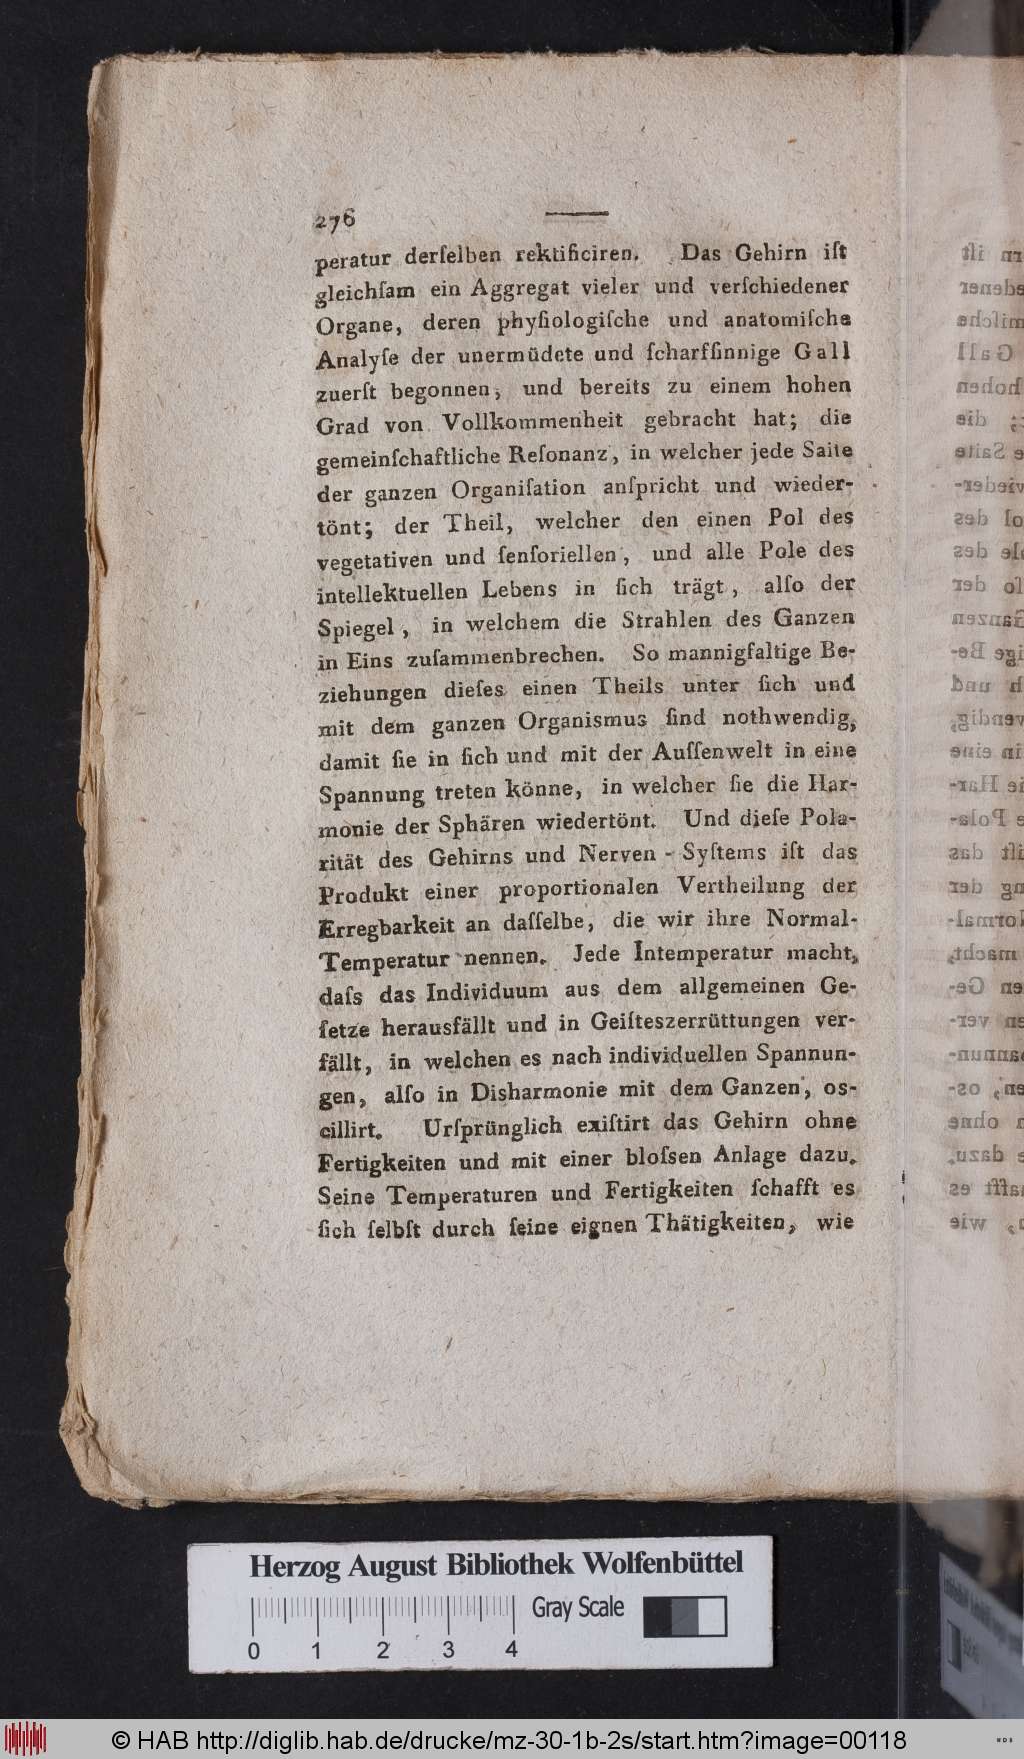 276
peratur derſelben rektificiren. Das Gehirn iſt
gleichſam ein Aggregat vieler und verſchiedener
Organe, deren phyſiologiſche und anatomiſche
Analyſe der unermüdete und ſcharfſinnige Gall
zuerſt begonnen, und bereits zu einem hohen
Grad von Vollkommenheit gebracht hat; die
gemeinſchaftliche Reſonanz, in welcher jede Saite
der ganzen Organiſation anſpricht und wieder-
tönt; der Theil, welcher den einen Pol des
vegetativen und ſenſoriellen, und alle Pole des
intellektuellen Lebens in ſich trägt, alſo der
Spiegel, in welchem die Strahlen des Ganzen
in Eins zuſammenbrechen. So mannigfaltige Be-
ziehungen dieſes einen Theils unter ſich und
mit dem ganzen Organismus ſind nothwendig,
damit ſie in ſich und mit der Auſſenwelt in eine
Spannung treten könne, in welcher ſie die Har-
monie der Sphären wiedertönt. Und dieſe Pola-
rität des Gehirns und Nerven-Syſtems iſt das
Produkt einer proportionalen Vertheilung der
Erregbarkeit an daſſelbe, die wir ihre Normal-
Temperatur nennen. Jede Intemperatur macht,
daſs das Individuum aus dem allgemeinen Ge-
ſetze herausfällt und in Geiſteszerrüttungen ver-
fällt, in welchen es nach individuellen Spannun-
gen, alſo in Disharmonie mit dem Ganzen, os-
cillirt. Urſprünglich exiſtirt das Gehirn ohne
Fertigkeiten und mit einer bloſsen Anlage dazu.
Seine Temperaturen und Fertigkeiten ſchafft es
ſich ſelbſt durch ſeine eignen Thätigkeiten, wie
Herzog August Bibliothek Wolfenbüttel
Gray Scale
0 1 2 3 4
© HAB http://diglib.hab.de/drucke/mz-30-1b-2s/start.htm?image=00118